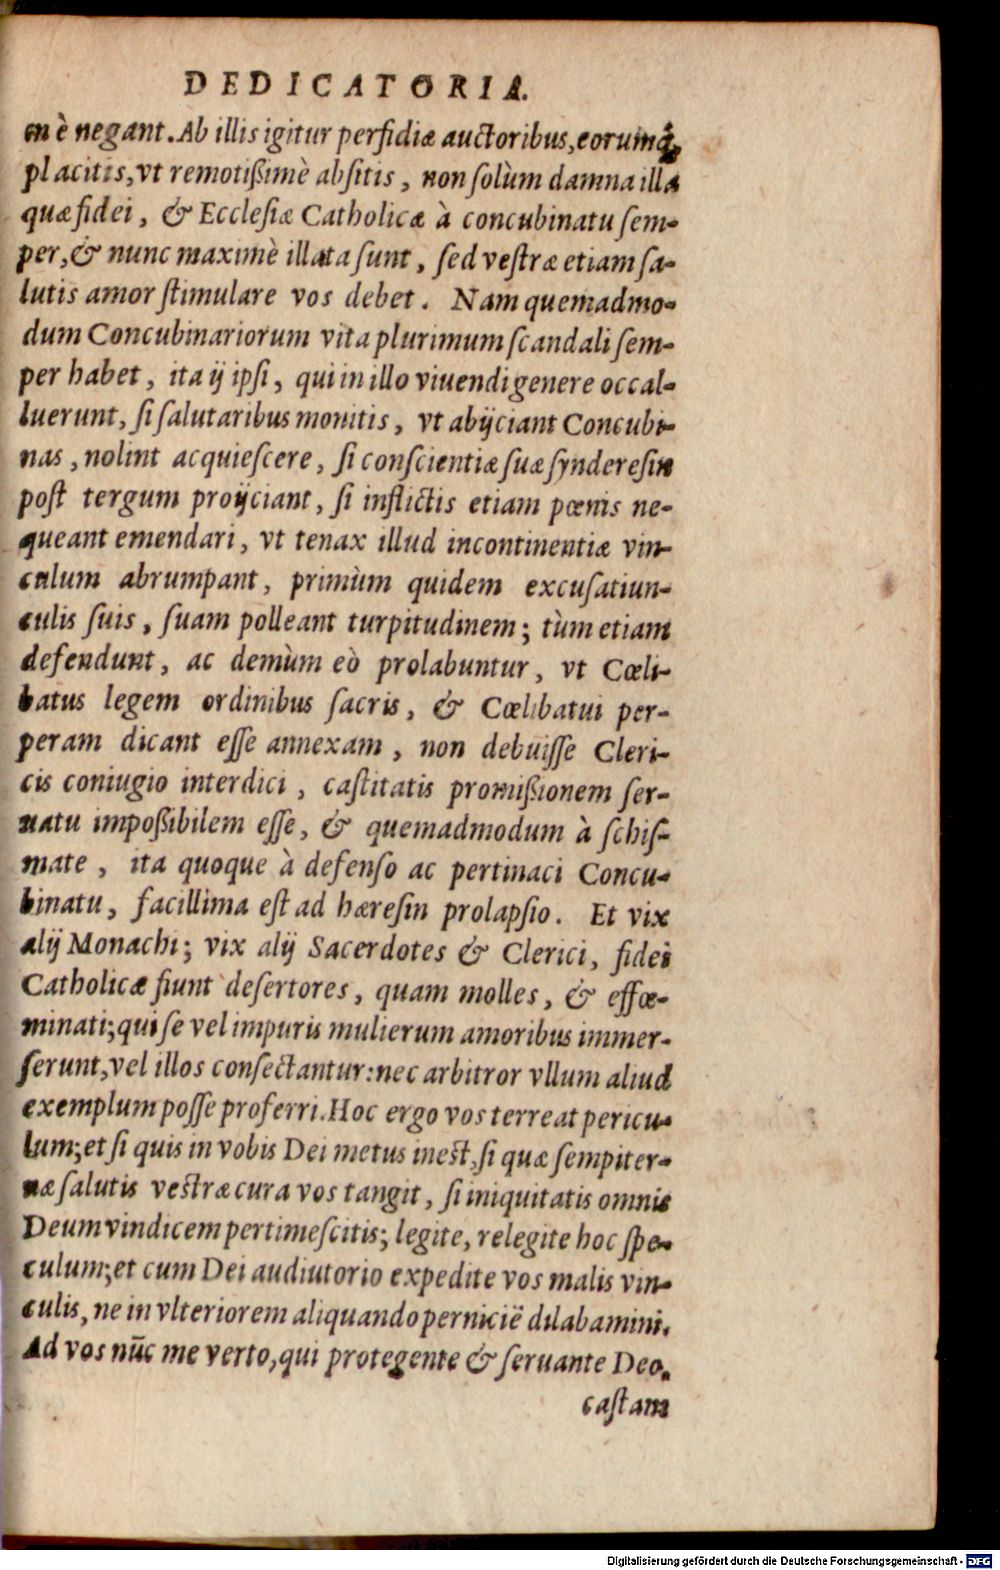 DEDICATORIA.
en è negant. Ab illis igitur perfidiæ auctoribus, eorumq́;
placitis, vt remotißimè absitis, non solùm damna illa
quæ fidei, & Ecclesiæ Catholicæ à concubinatu sem-
per, & nunc maximè illata sunt, sed vestræ etiam sa-
lutis amor stimulare vos debet. Nam quemadmo-
dum Concubinariorum vita plurimum scandali sem-
per habet, ita ij ipsi, qui in illo viuendi genere occal-
luerunt, si salutaribus monitis, vt abijciant Concubi-
nas, nolint acquiescere, si conscientiæ suæ synderesin
post tergum proijciant, si inflictis etiam pœnis ne-
queant emendari, vt tenax illud incontinentiæ vin-
culum abrumpant, primùm quidem excusatiun-
culis suis, suam polleant turpitudinem; tùm etiam
defendunt, ac demùm eò prolabuntur, vt Cœli-
batus legem ordinibus sacris, & Cœlibatui per-
peram dicant esse annexam, non debuisse Cleri-
cis coniugio interdici, castitatis promißionem ser-
uatu impoßibilem esse, & quemadmodum à schis-
mate, ita quoque à defenso ac pertinaci Concu-
binatu, facillima est ad hæresin prolapsio. Et vix
alij Monachi; vix alij Sacerdotes & Clerici, fidei
Catholicæ fiunt desertores, quam molles, & effœ-
minati; qui se vel impuris mulierum amoribus immer-
serunt, vel illos consectantur: nec arbitror vllum aliud
exemplum posse proferri. Hoc ergo vos terreat pericu-
lum; et si quis in vobis Dei metus inest, si quæ sempiter-
næ salutis vestræ cura vos tangit, si iniquitatis omnis
Deum vindicem pertimescitis; legite, relegite hoc spe-
culum; et cum Dei audiutorio expedite vos malis vin-
culis, ne in vlteriorem aliquando perniciē dilabamini.
Ad vos nūc me verto, qui protegente & seruante Deo.
castam
Digitalisierung gefördert durch die Deutsche Forschungsgemeinschaft - DFG